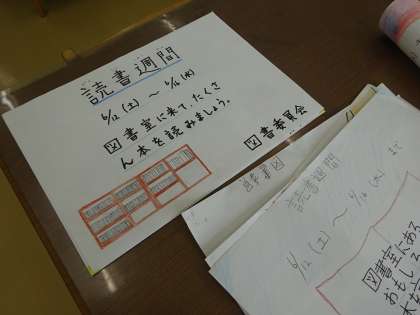 読書週間
6/12(土)~6/16(水)
図書室に来て、たくさ
ん本を読みましょう。
図書委員会
読書週間
6/12(土)~6/16(水)まで
図書室にある
おもしろ